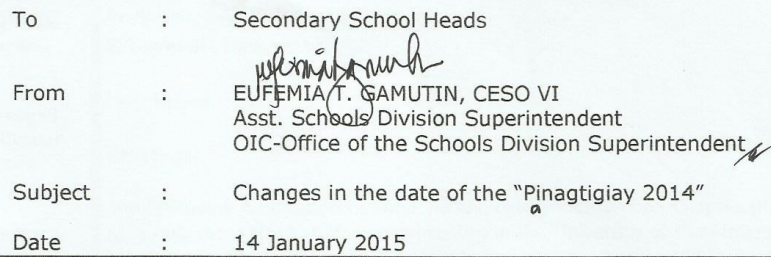 To : Secondary School Heads
From : EUFEMIA T. GAMUTIN, CESO VI
Asst. Schools Division Superintendent
OIC-Office of the Schools Division Superintendent
Subject : Changes in the date of the “Pinagtigiay 2014”
a
Date : 14 January 2015